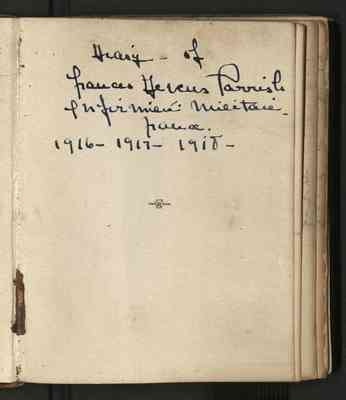 Diary - of
Frances Jevens Parrish
Infirmière Militaire -
France.
1916 - 1917 - 1918 -